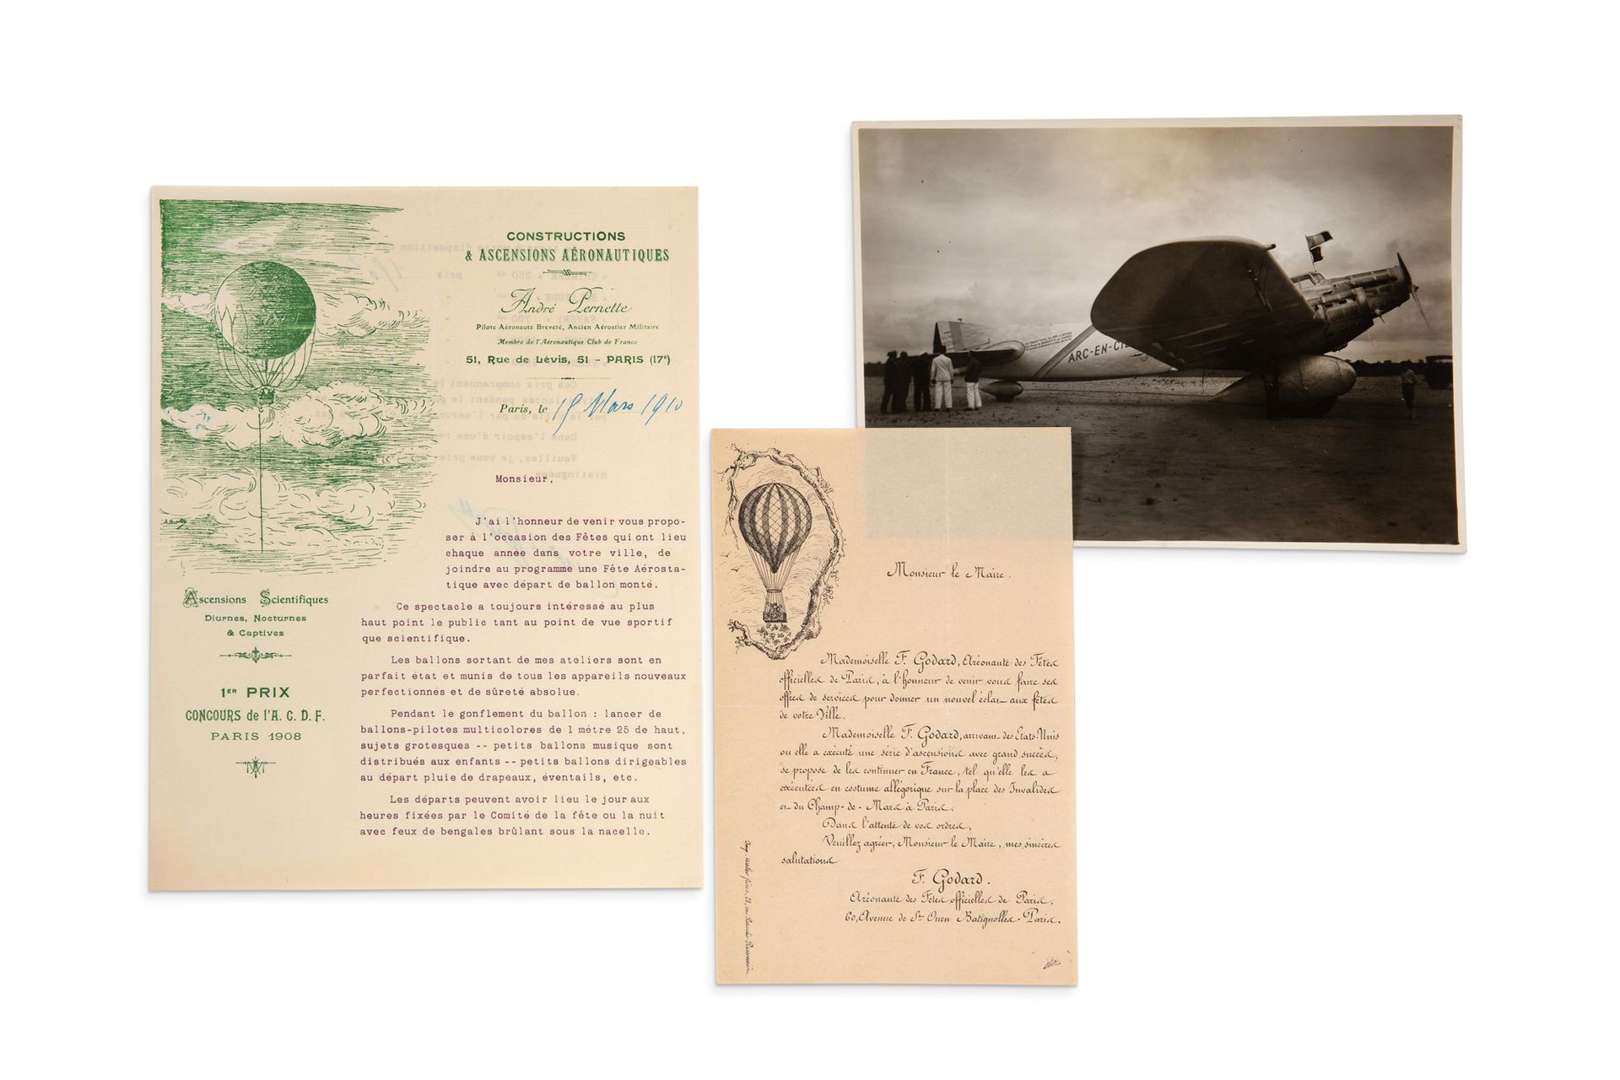 CONSTRUCTIONS
& ASCENSIONS AÉRONAUTIQUES
André Pernette
Pilote Aéronaute Breveté, Ancien Aérostier Militaire
Membre de l'Aéronautique Club de France
51, Rue de Lévis, 51 - PARIS (17e)
Paris, le 19 Mars 1910
Monsieur,
J'ai l'honneur de venir vous propo-
ser à l'occasion des Fêtes qui ont lieu
chaque année dans votre ville, de
joindre au programme une Fête Aérosta-
tique avec départ de ballon monté.
Ce spectacle a toujours intéressé au plus
haut point le public tant au point de vue sportif
que scientifique.
Les ballons sortant de mes ateliers sont en
parfait état et munis de tous les appareils nouveaux
perfectionnés et de sûreté absolue.
Pendant le gonflement du ballon : lancer de
ballons-pilotes multicolores de 1 métre 25 de haut,
sujets grotesques -- petits ballons musique sont
distribués aux enfants -- petits ballons dirigeables
au départ pluie de drapeaux, éventails, etc.
Les départs peuvent avoir lieu le jour aux
heures fixées par le Comité de la fête ou la nuit
avec feux de bengales brûlant sous la nacelle.
Ascensions Scientifiques
Diurnes, Nocturnes
& Captives
1er PRIX
CONCOURS de l'A. C. D. F.
PARIS 1908
ARC-EN-CIE
Monsieur le Maire.
Mademoiselle F. Godard, Aéronaute des Fêtes
officielles de Paris, à l'honneur de venir vous faire ses
offres de services pour donner un nouvel éclat aux fêtes
de votre Ville.
Mademoiselle F. Godard, arrivant des Etats-Unis
ou elle a exécuté une série d'ascensions avec grand succès,
se propose de les continuer en France, tel qu'elle les a
exécutées en costume allégorique sur la place des Invalides
et du Champ-de-Mars à Paris.
Dans l'attente de vos ordres,
Veuillez agréer, Monsieur le Maire, mes sincères
salutations
F. Godard.
Aéronaute des Fêtes officielles de Paris.
60, Avenue de St Ouen Batignolles-Paris.